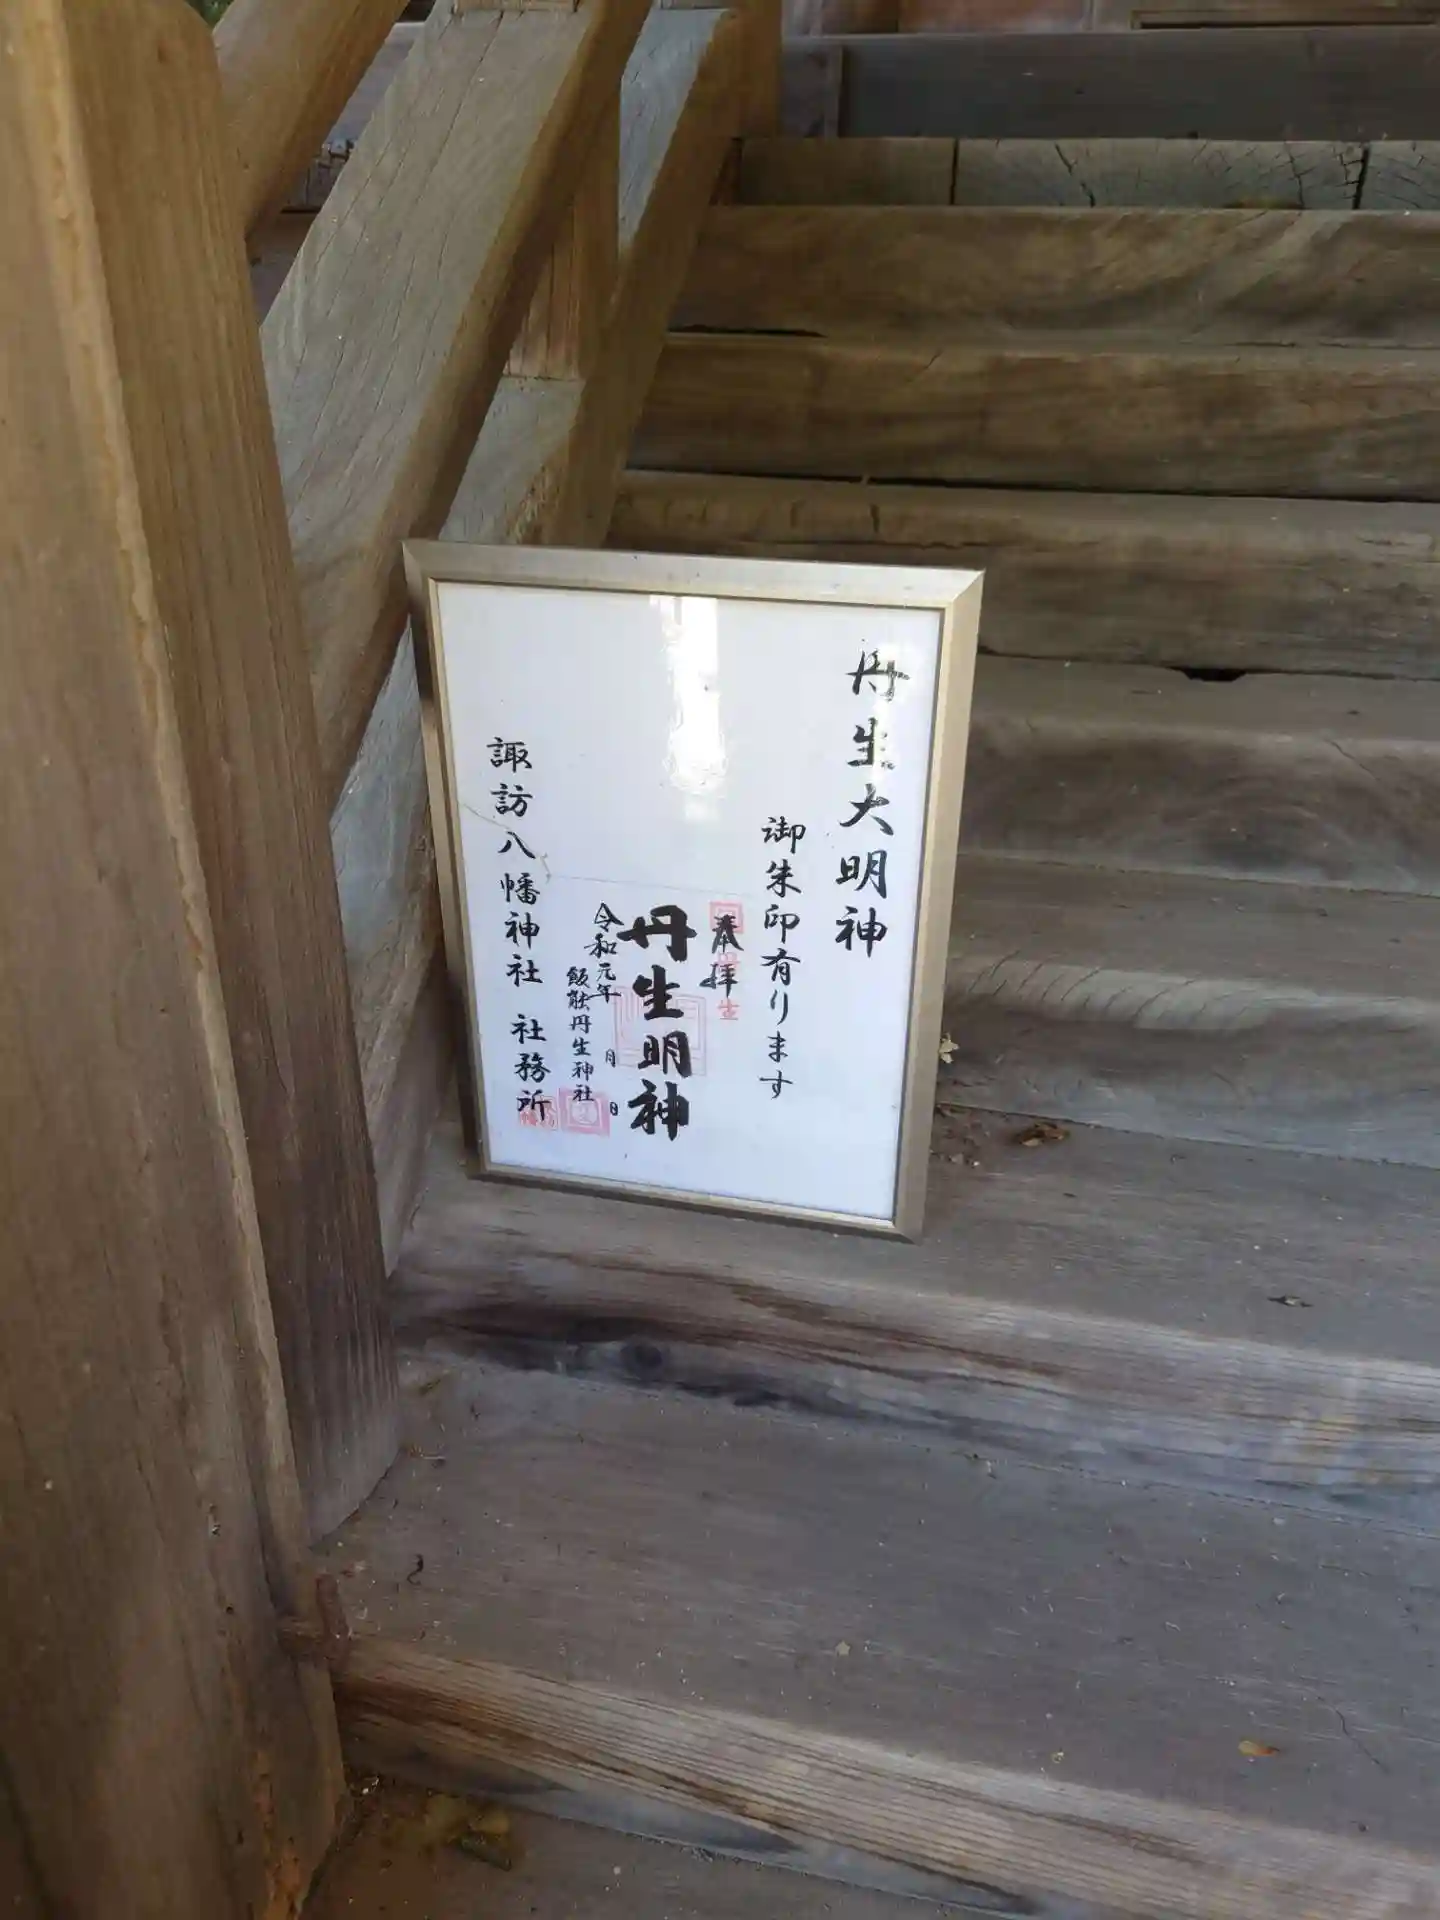 丹生大明神
御朱印有ります
奉拝
丹生明神
令和元年 月 日
飯能丹生神社
諏訪八幡神社 社務所